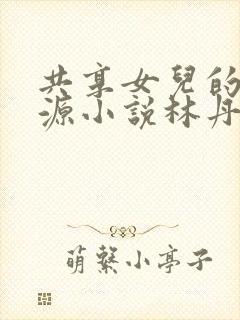 共享女兒的
源小說林丹
萌繫小亭子